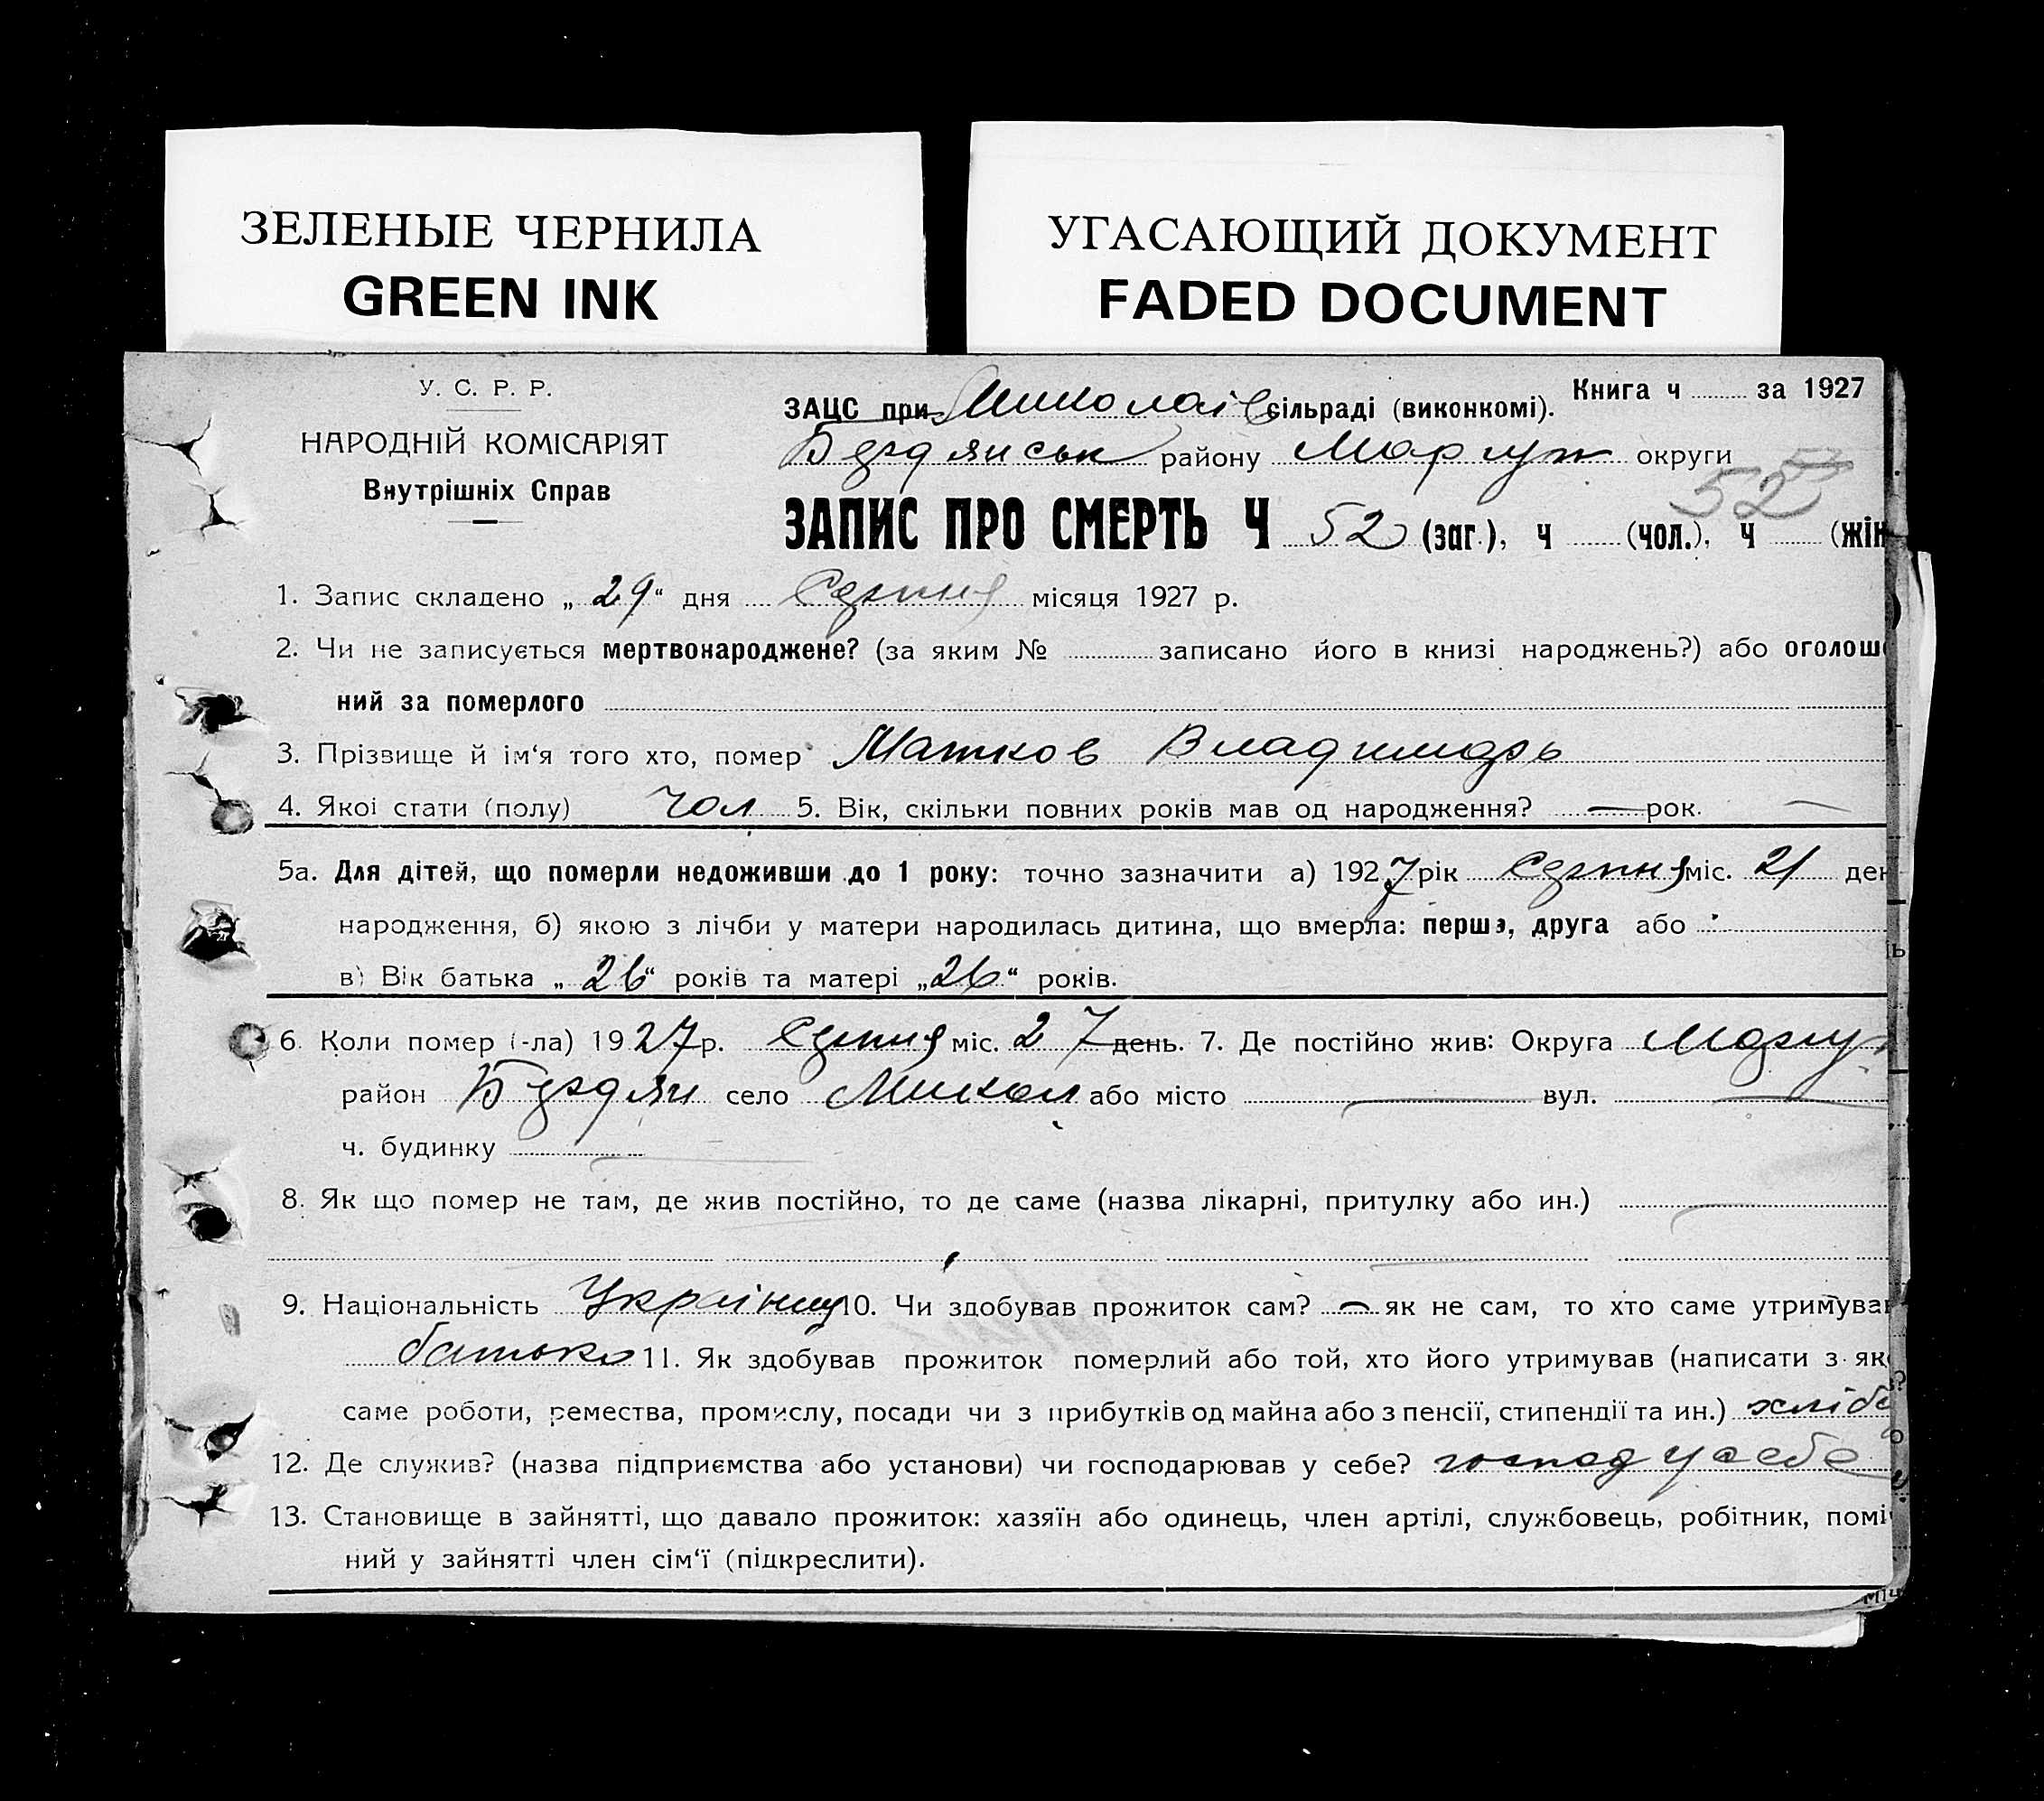 ЗЕЛЕНЫЕ ЧЕРНИЛА
GREEN INK
УГАСАЮЩИЙ ДОКУМЕНТ
FADED DOCUMENT
У. С. Р. Р.
НАРОДНІЙ КОМІСАРІЯТ
Внутрішніх Справ
Книга ч за 1927
ЗАЦС при Миколаїв сільраді (виконкомі).
Бердянськ району Маріуп округи
52
ЗАПИС ПРО СМЕРТЬ Ч 52 (заг.), ч (чол.), ч (жін
1. Запис складено „29“ дня Серпня місяця 1927 р.
2. Чи не записується мертвонароджене? (за яким № записано його в книзі народжень?) або оголоше
ний за померлого
3. Прізвище й ім‘я того хто, помер Матков Владимирь
4. Якоі стати (полу) чол 5. Вік, скільки повних років мав од народження? — рок. —
5а. Для дітей, що померли недоживши до 1 року: точно зазначити а) 1927 рік Серпня міс. 21 ден
народження, б) якою з лічби у матери народилась дитина, що вмерла: перша, друга або
в) Вік батька „26“ років та матері „26“ років.
6. Коли помер (-ла) 1927 р. Серпня міс. 27 день. 7. Де постійно жив: Округа Маріуп
район Бердян село Микол або місто — вул. —
ч. будинку —
8. Як що помер не там, де жив постійно, то де саме (назва лікарні, притулку або ин.) —
9. Національність Українец 10. Чи здобував прожиток сам? — як не сам, то хто саме утримував
батько 11. Як здобував прожиток померлий або той, хто його утримував (написати з як
саме роботи, ремества, промислу, посади чи з прибутків од майна або з пенсії, стипендії та ин.) хлібо
12. Де служив? (назва підприємства або установи) чи господарював у себе? господ у себе
13. Становище в зайнятті, що давало прожиток: хазяїн або одинець, член артілі, службовець, робітник, поміч
ний у зайнятті член сім‘ї (підкреслити).